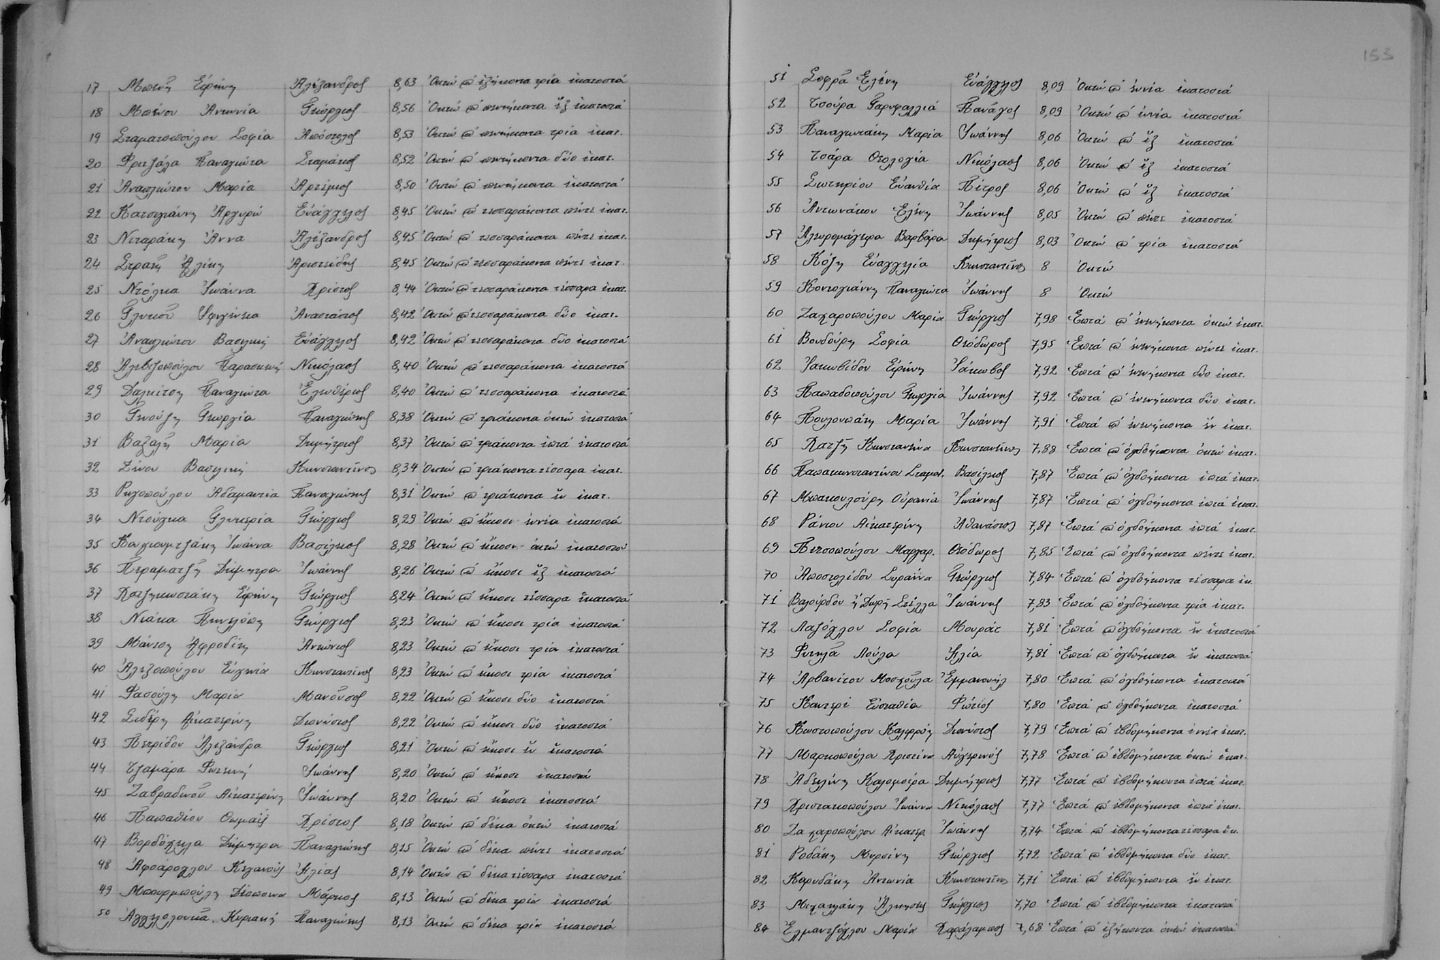 17 Μπενῆ Εἰρήνη Ἀλέξανδρος 8,63 Ὀκτώ & ἑξήκοντα τρία ἑκατοστά
18 Μπάνου Ἀντωνία Γεώργιος 8,56 Ὀκτώ & πενήκοντα ἕξ ἑκατοστά
19 Σταματοπούλου Σοφία Ἀπόστολος 8,53 Ὀκτώ & πενήκοντα τρία ἑκατ.
20 Φρατζόλα Παναγιώτα Σταμάτιος 8,52 Ὀκτώ & πενήκοντα δύο ἑκατ.
21 Ἀναγνώστου Μαρία Ἀρτέμιος 8,50 Ὀκτώ & πενήκοντα ἑκατοστά
22 Κατσιγιάννη Ἀργυρώ Εὐάγγελος 8,45 Ὀκτώ & τεσσαράκοντα πέντε ἑκατ.
23 Νταράκη Ἄννα Ἀλέξανδρος 8,45 Ὀκτώ & τεσσαράκοντα πέντε ἑκατ.
24 Στρατῆ Ἀγλίκη Ἀριστείδης 8,45 Ὀκτώ & τεσσαράκοντα πέντε ἑκατ.
25 Ντόλκα Ἰωάννα Χρίστος 8,44 Ὀκτώ & τεσσαράκοντα τέσσαρα ἑκατ.
26 Γλυκοῦ Ἰφιγένεια Ἀναστάσιος 8,42 Ὀκτώ & τεσσαράκοντα δύο ἑκατ.
27 Ἀναγνώστου Βασιλική Εὐάγγελος 8,42 Ὀκτώ & τεσσαράκοντα δύο ἑκατοστά
28 Ἀλεβιζοπούλου Παρασκευή Νικόλαος 8,40 Ὀκτώ & τεσσαράκοντα ἑκατοστά
29 Δαγκίτση Παναγιώτα Ἐλευθέριος 8,40 Ὀκτώ & τεσσαράκοντα ἑκατοστά
30 Γκούζη Γεωργία Παναγιώτης 8,38 Ὀκτώ & τριάκοντα ὀκτώ ἑκατοστά
31 Βαζαῖη Μαρία Δημήτριος 8,37 Ὀκτώ & τριάκοντα ἑπτά ἑκατοστά
32 Ζένου Βασιλική Κωνσταντῖνος 8,34 Ὀκτώ & τριάκοντα τέσσαρα ἑκατ.
33 Ρηγοπούλου Ἀδαμαντία Παναγιώτης 8,31 Ὀκτώ & τριάκοντα ἕν ἑκατ.
34 Ντούγκα Γλυκερία Γεώργιος 8,29 Ὀκτώ & εἴκοσι ἐννέα ἑκατοστά
35 Καγιαμτζάκη Ἰωάννα Βασίλειος 8,28 Ὀκτώ & εἴκοσι ὀκτώ ἑκατοστά
36 Περαματζῆ Δήμητρα Ἰωάννης 8,26 Ὀκτώ & εἴκοσι ἕξ ἑκατοστά
37 Χατζηκωστάκη Εἰρήνη Γεώργιος 8,24 Ὀκτώ & εἴκοσι τέσσαρα ἑκατοστά
38 Νιάκα Πηνελόπη Γεώργιος 8,23 Ὀκτώ & εἴκοσι τρία ἑκατοστά
39 Μάντση Ἀφροδίτη Ἀντώνιος 8,23 Ὀκτώ & εἴκοσι τρία ἑκατοστά
40 Ἀλεξοπούλου Εὐγενία Κωνσταντῖνος 8,23 Ὀκτώ & εἴκοσι τρία ἑκατοστά
41 Φασούλη Μαρία Μανοῦσος 8,22 Ὀκτώ & εἴκοσι δύο ἑκατοστά
42 Σιδέρη Αἰκατερίνη Διονύσιος 8,22 Ὀκτώ & εἴκοσι δύο ἑκατοστά
43 Πετρίδου Ἀλεξάνδρα Γεώργιος 8,21 Ὀκτώ & εἴκοσι ἕν ἑκατοστά
44 Τζαμάρα Φωτεινή Ἰωάννης 8,20 Ὀκτώ & εἴκοσι ἑκατοστά
45 Ζαβραδινοῦ Αἰκατερίνη Ἰωάννης 8,20 Ὀκτώ & εἴκοσι ἑκατοστά
46 Παπαθέου Θωμαΐς Χρίστος 8,18 Ὀκτώ & δέκα ὀκτώ ἑκατοστά
47 Βορδόγελα Δήμητρα Παναγιώτης 8,15 Ὀκτώ & δέκα πέντε ἑκατοστά
48 Ἀφσάρογλου Κεχανούς Ἀλίας 8,14 Ὀκτώ & δέκα τέσσαρα ἑκατοστά
49 Μπουρμπούλη Δέσποινα Μάρκος 8,13 Ὀκτώ & δέκα τρία ἑκατοστά
50 Κυριακή Παναγιώτης 8,13 Ὀκτώ & δέκα τρία ἑκατοστά
153
51 Σοφρᾶ Ἑλένη Εὐάγγελος 8,09 Ὀκτώ & ἐννέα ἑκατοστά
52 Τσούρα Γαρυφαλλιά Πανάγος 8,09 Ὀκτώ & ἐννέα ἑκατοστά
53 Παναγιωτάκη Μαρία Ἰωάννης 8,06 Ὀκτώ & ἕξ ἑκατοστά
54 Τσάρα Θεολογία Νικόλαος 8,06 Ὀκτώ & ἕξ ἑκατοστά
55 Σωτηρίου Εὐανθία Πέτρος 8,06 Ὀκτώ & ἕξ ἑκατοστά
56 Ἀντωνάκου Ἑλένη Ἰωάννης 8,05 Ὀκτώ & πέντε ἑκατοστά
57 Ἀλευρομάγειρα Βαρβάρα Δημήτριος 8,03 Ὀκτώ & τρία ἑκατοστά
58 Κόζη Εὐαγγελία Κωνσταντῖνος 8 Ὀκτώ
59 Κοντογιάννη Παναγιώτα Ἰωάννης 8 Ὀκτώ
60 Ζαχαροπούλου Μαρία Γεώργιος 7,98 Ἑπτά & ἐνενήκοντα ὀκτώ ἑκατ.
61 Βουδούρη Σοφία Θεόδωρος 7,95 Ἑπτά & ἐνενήκοντα πέντε ἑκατ.
62 Ἰακωβίδου Εἰρήνη Ἰάκωβος 7,92 Ἑπτά & ἐνενήκοντα δύο ἑκατ.
63 Παπαδοπούλου Γεωργία Ἰωάννης 7,92 Ἑπτά & ἐνενήκοντα δύο ἑκατ.
64 Πουλοπάτη Μαρία Ἰωάννης 7,91 Ἑπτά & ἐνενήκοντα ἕν ἑκατ.
65 Χατζῆ Κωνσταντίνα Κωνσταντῖνος 7,88 Ἑπτά & ὀγδοήκοντα ὀκτώ ἑκατ.
66 Παπακωνσταντίνου Σταματ. Βασίλειος 7,87 Ἑπτά & ὀγδοήκοντα ἑπτά ἑκατ.
67 Μπακουλούρη Οὐρανία Ἰωάννης 7,87 Ἑπτά & ὀγδοήκοντα ἑπτά ἑκατ.
68 Ράντου Αἰκατερίνη Ἀθανάσιος 7,87 Ἑπτά & ὀγδοήκοντα ἑπτά ἑκατ.
69 Πιτσοπούλου Μαργαρ. Θεόδωρος 7,85 Ἑπτά & ὀγδοήκοντα πέντε ἑκατ.
70 Ἀποστολίδου Συραίνα Γεώργιος 7,84 Ἑπτά & ὀγδοήκοντα τέσσαρα ἑκ.
71 Βαλσίρδου ἤ Δαρῆ Στέλλα Ἰωάννης 7,83 Ἑπτά & ὀγδοήκοντα τρία ἑκατ.
72 Λαζόγλου Σοφία Μουράτ 7,81 Ἑπτά & ὀγδοήκοντα ἕν ἑκατοστά
73 Φυτηλᾶ Λούλα Ἀλία 7,81 Ἑπτά & ὀγδοήκοντα ἕν ἑκατοστά
74 Ἀρβανίτου Μοσχούλα Ἐμμανουήλ 7,80 Ἑπτά & ὀγδοήκοντα ἑκατοστά
75 Καντερέ Εὐσταθία Φώτιος 7,80 Ἑπτά & ὀγδοήκοντα ἑκατοστά
76 Κωστοπούλου Καλιρρόη Διονύσιος 7,79 Ἑπτά & ἑβδομήκοντα ἐννέα ἑκατ.
77 Μαρκοπούλου Χριστίνα Αὐγερινός 7,78 Ἑπτά & ἑβδομήκοντα ὀκτώ ἑκατ.
78 Ἀδελίνη Καλομοίρα Δημήτριος 7,77 Ἑπτά & ἑβδομήκοντα ἑπτά ἑκατ.
79 Χριστακοπούλου Ἰωάννα Νικόλαος 7,77 Ἑπτά & ἑβδομήκοντα ἑπτά ἑκατ.
80 Ζαχαροπούλου Αἰκατερ. Ἰωάννης 7,74 Ἑπτά & ἑβδομήκοντα τέσσαρα ἑκ.
81 Ροδάκη Μυρσίνη Γεώργιος 7,72 Ἑπτά & ἑβδομήκοντα δύο ἑκατ.
82 Καρυδάκη Ἀντωνία Κωνσταντῖνος 7,71 Ἑπτά & ἑβδομήκοντα ἕν ἑκατ.
83 Μιχαηλάκη Ἄλκηστις Γεώργιος 7,70 Ἑπτά & ἑβδομήκοντα ἑκατοστά
84 Ἐλμαντζόγλου Μαρία Χαράλαμπος 7,68 Ἑπτά & ἑξήκοντα ὀκτώ ἑκατοστά